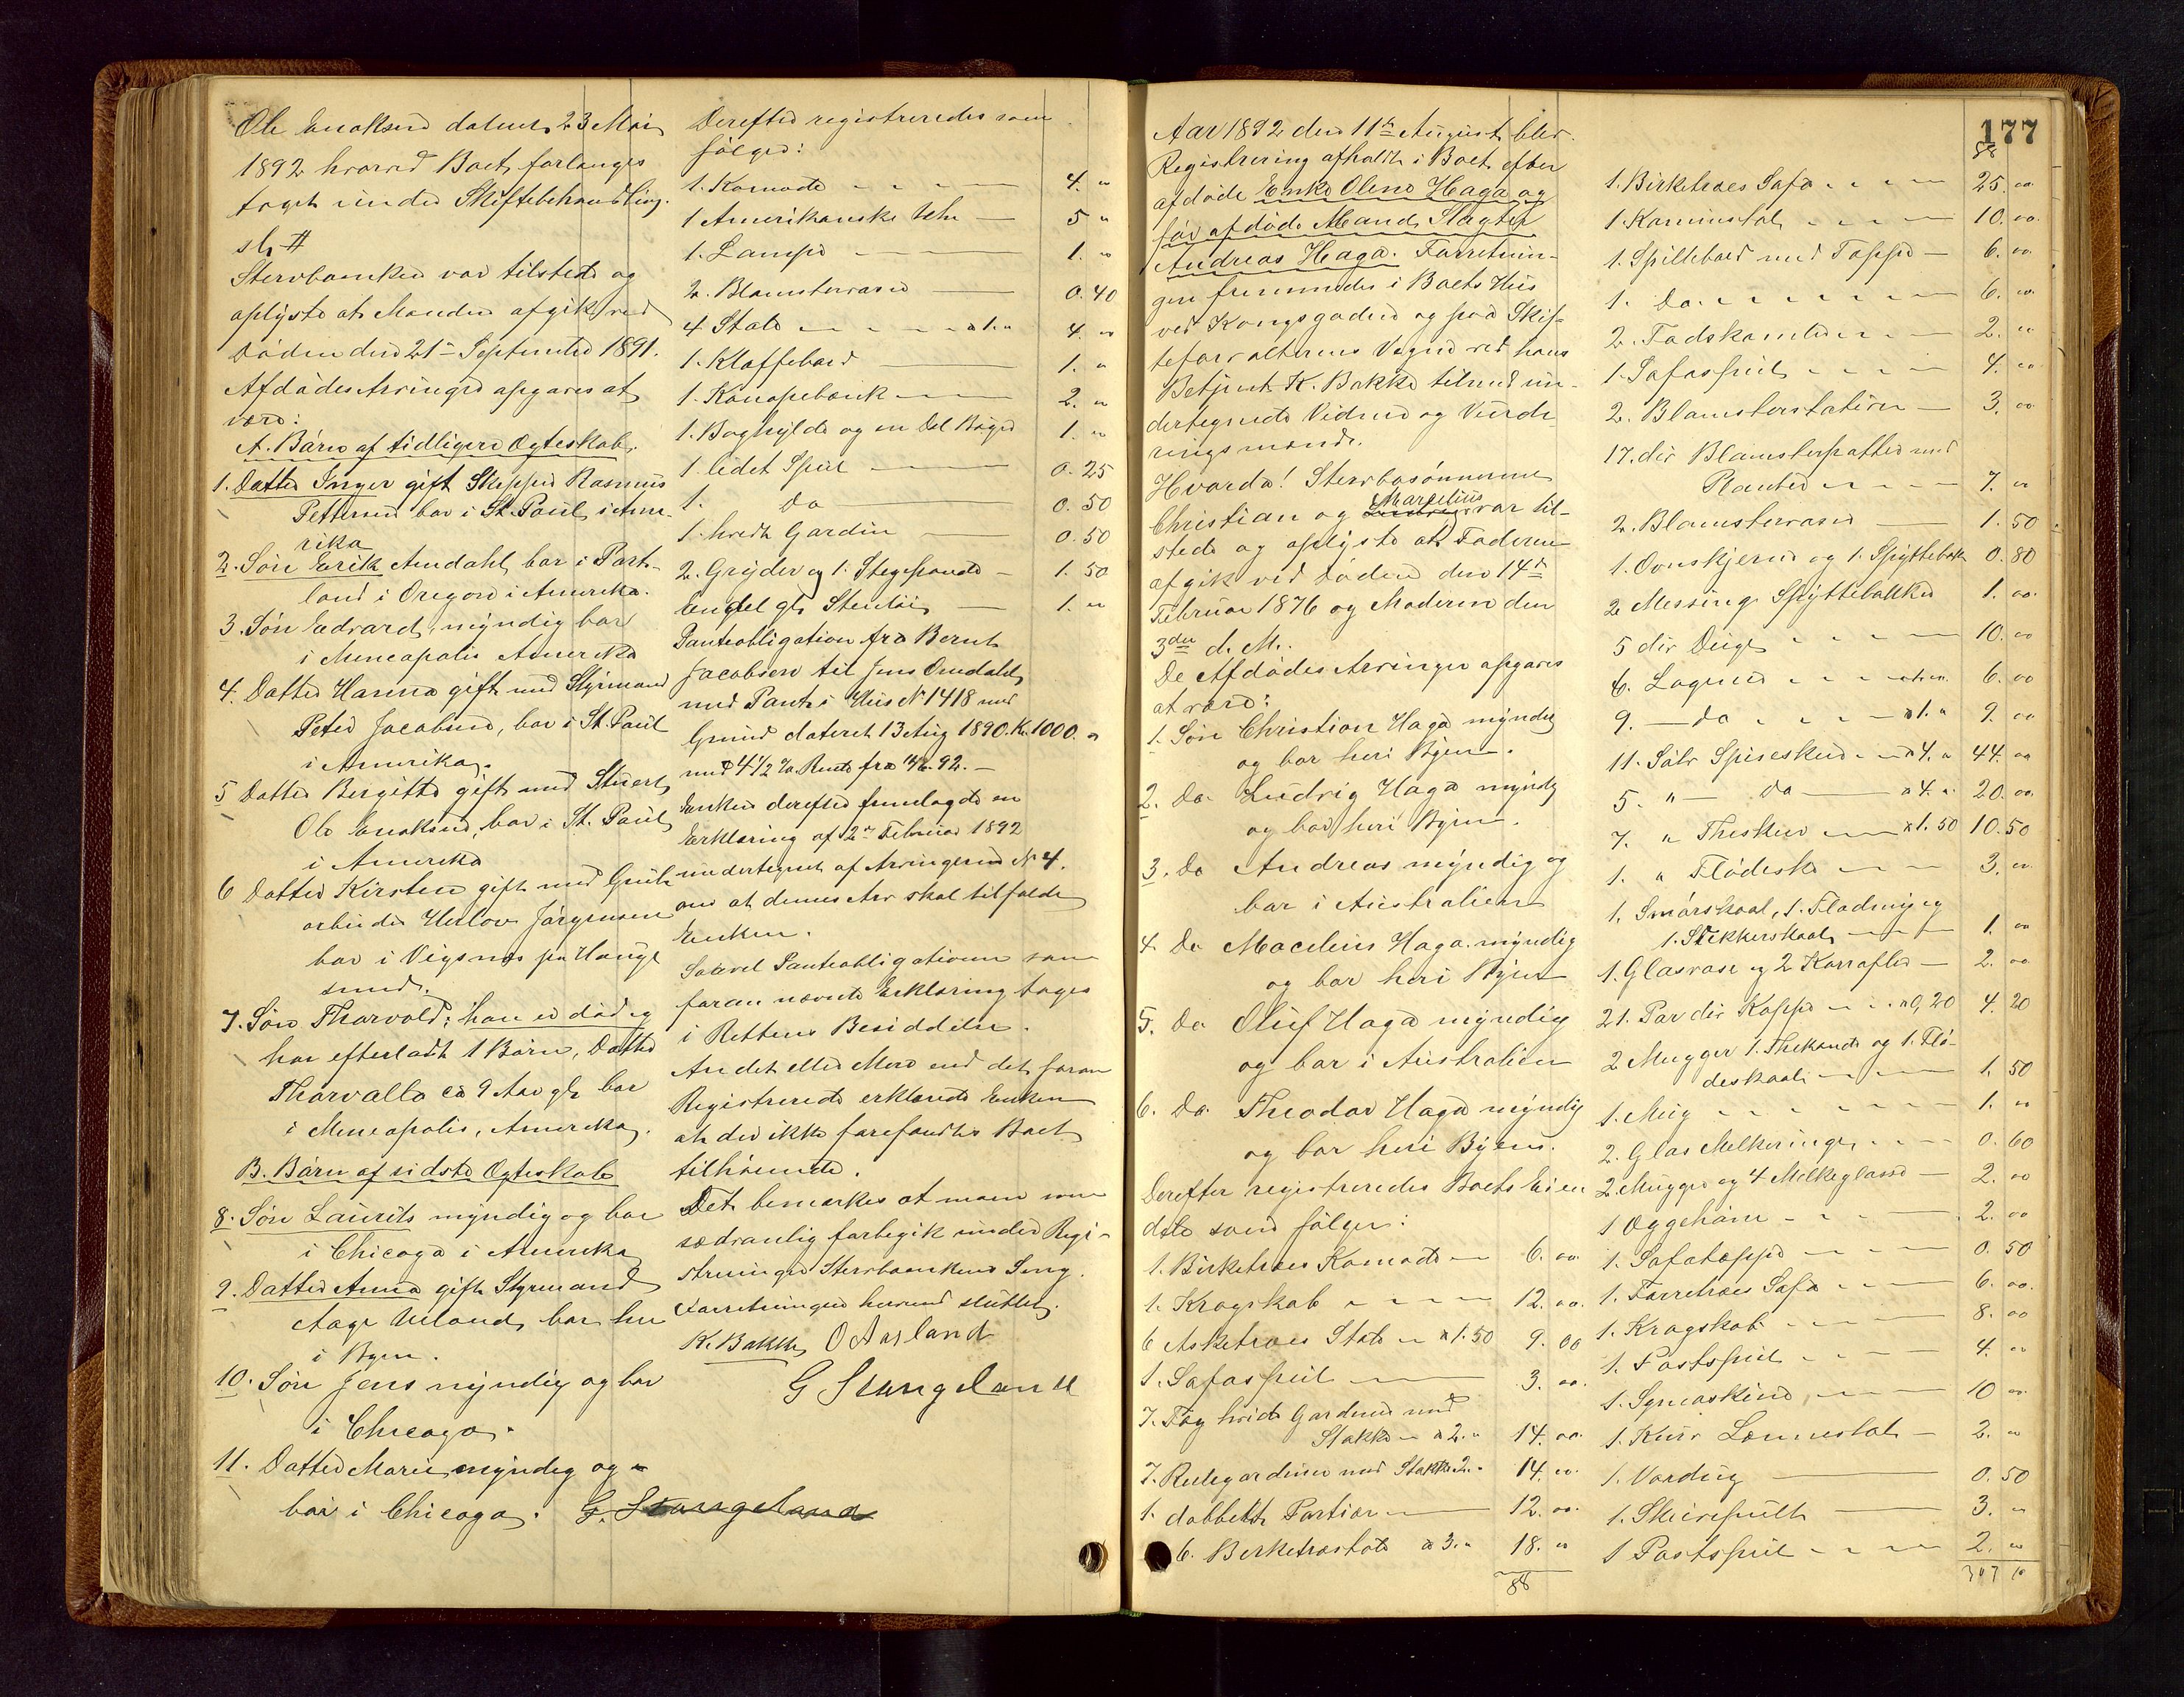 Ole Enoksen datert 23 Mai
1892 hvorved Boet forlanges
taget under Skiftebehandling.
sh #
Stervboenken var tilstede og
oplyste at Manden afgik ved
Døden den 21de September 1891.
Afdødes Arvinger opgaves at
være:
A. Børn af tidligere Ægteskab.
1. Datter Inger gift Skipper Rasmus
Pettersen bor i St. Paul i Ame-
rika
2. Søn Erik Amdahl, bor i Port-
land i Oregon i Amerika.
3. Søn Edvard, myndig bor
i Mineapolis Amerika
4. Datter Hanna gift med Styrmand
Peter Jacobsen, bor i St. Paul
i Amerika.
5 Datter Bergitte gift med Stuert
Ole Enoksen, bor i St. Paul
i Amerika
6 Datter Kirsten gift med Grub-
arbeider Herlov Jörgensen
bor i Vigsnes pr Hauge
sund.
7. Søn Thorvald; han er död og
har efterladt 1 Barn, Datter
Thorvalla ca 9 Aar gl. bor
i Mineapolis, Amerika.
B. Børn af sidste Ægteskab
8. Søn Laurits myndig og bor
i Chicago i Amerika
9. Datter Anna gift Styrmand
Aage Ueland, bor her
i Byen.
10. Søn Jens myndig og bor
i Chicago.
11. Datter Marie myndig og
bor i Chicago. G. Stangeland
Derefter registreredes som
følger:
1. Komode 4. "
1 Amerikanske Uhr 5 "
1. Lampe 1. "
2. Blomstervaser 0. 40
4 Stole a 1. " 4. "
1. Klaffebord 1. "
1. Kanapebænk 2. "
1. Boghylde og en Del Bøger 1. "
1 lidet Speil 0. 25
1. do 0. 50
1. hvidt Gardin 0. 50
2. Gryder og 1. Stegepande 1. 50
Endel gl. Stentøi 1. "
Panteobligation fra Bernt
Jacobsen til Jens Omdahl
med Pant i Hus No 1418 med
Grund dateret 13 Aug 1890. Kr. 1000. "
med 4 1/2 % Rente fra 11/6. 92.
Enken derefter fremlagde en
Erklæring af 2den Februar 1892
undertegnet af Arvingerne No 4.
om at dennes Arv skal tilfalde
Enken.
Saavel Panteobligationen som
foran nævnte Erklæring toges
i Rettens Besiddelse.
Andet eller Mere end det foran
Registrerede erklærede Enken
at der ikke forefandtes Boet
tilhørende.
Det bemærkes at man som
sædvanlig forbigik under Regi-
streringen Stervboenkens Seng.
Forretningen hermed sluttet.
K. Bakke O Aarland
G Stangeland
177
Aar 1892 den 11te August blev
Registrering afholdt i Boet efter
afdøde Enke Olene Haga og
før afdøde Mand Slagter
Andreas Haga. Forretnin-
gen fremmedes i Boets Hus
ved Kongsgaden og paa Skif-
teforvalterens Vegne ved hans
Betjent K. Bakke tilmed un-
dertegnede Vidner og Vurde
ringsmænd.
Hvorda! Stervbosønnerne
Marcelius
Christian og Ludvig var til-
stede og oplyste at Faderen
afgik ved Døden den 14de
Februar 1876 og Moderen den
3die d. M.
De Afdødes Arvinger opgaves
at være:
1. Søn Christian Haga myndig
og bor heri Byen.
2. Do Ludvig Haga myndig
og bor heri Byen.
3. Do Andreas myndig og
bor i Australien
4. Do Macelius Haga. myndig
og bor heri Byen
5. Do Oluf Haga myndig
og bor i Australien
6. Do Theodor Haga myndig
og bor heri Byen.
Derefter registreredes Boets Eien
dele som følger:
1. Birketræes Komode 6. oo
1. Krogskab 12. oo.
6 Asketræes Stole a 1. 50 9. oo
1. Sofaspeil 3. oo.
7. Fag hvide Gardiner med
Stokke a 2. " 14. oo.
7. Rulegardiner med Stokke 2. " 14. "
1. dobbelt Portier 12. oo.
6. Berketræstole a 3. " 18. "
88
88
1. Birketræes Sofa 25. oo
1. Karmestol 10. oo.
1. Spillebord med Teppe 6. oo.
1. Do. 6. oo.
2. Fodskamler 2. "
1. Sofaspeil 4. oo
2. Blomsterstativer 3. oo
17. dir Blomsterpotter med
Planter 7. "
2. Blomstervaser 1. 50
1. Ovnskjerm og 1. Spyttebak 0. 80
2 Messing Spyttebakker 1. oo.
5 dir Duge 10. oo
6. Lagener a 1. " 6. oo
9. do a 1. " 9. oo
11. Sølv Spiseskeer a 4. " 44. oo
5. " do a 4. " 20. oo
7. " Theskeer a 1. 50 10. 50
1. " Flødeske 3. "
1. Smørskaal, 1. Flødmug og
1. Sukkerskaal 1. oo
1. Glasvase og 2 Karafler 2. oo
21. Par dir Kopper a 0,20 4. 20
2 Mugger 1. Thekande og 1. Flø-
deskaal 1. 50
1. Mug 1. "
2. Glas Melkeringe 0. 60
2 Mugger og 4 Melkeglasse 2. oo
1 Æggehøne 2. oo
1. Sofateppe 0. 50
1. Furretræes Sofa 6. oo.
1. Krogskab 8. oo
1. Postspeil 4. "
1. Symaskine 10 oo.
1. Kurv Lænestol 2. "
1. Vordug 0. 50
1. Skrivepult 3. "
1 Postspeil 2. "